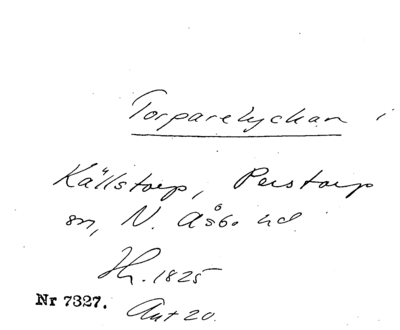 Torparelyckan i
Källstorp, Perstorp
sn, N. Åsbo hd
Hh. 1825
Nr 7327.
Ant 20.